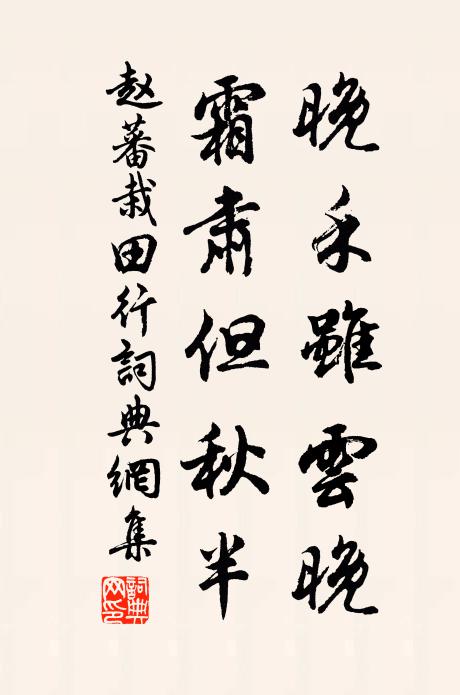 晚禾雖雲晚
霜肅但秋半
赵蕃栽田行詞典網集
詞典网印